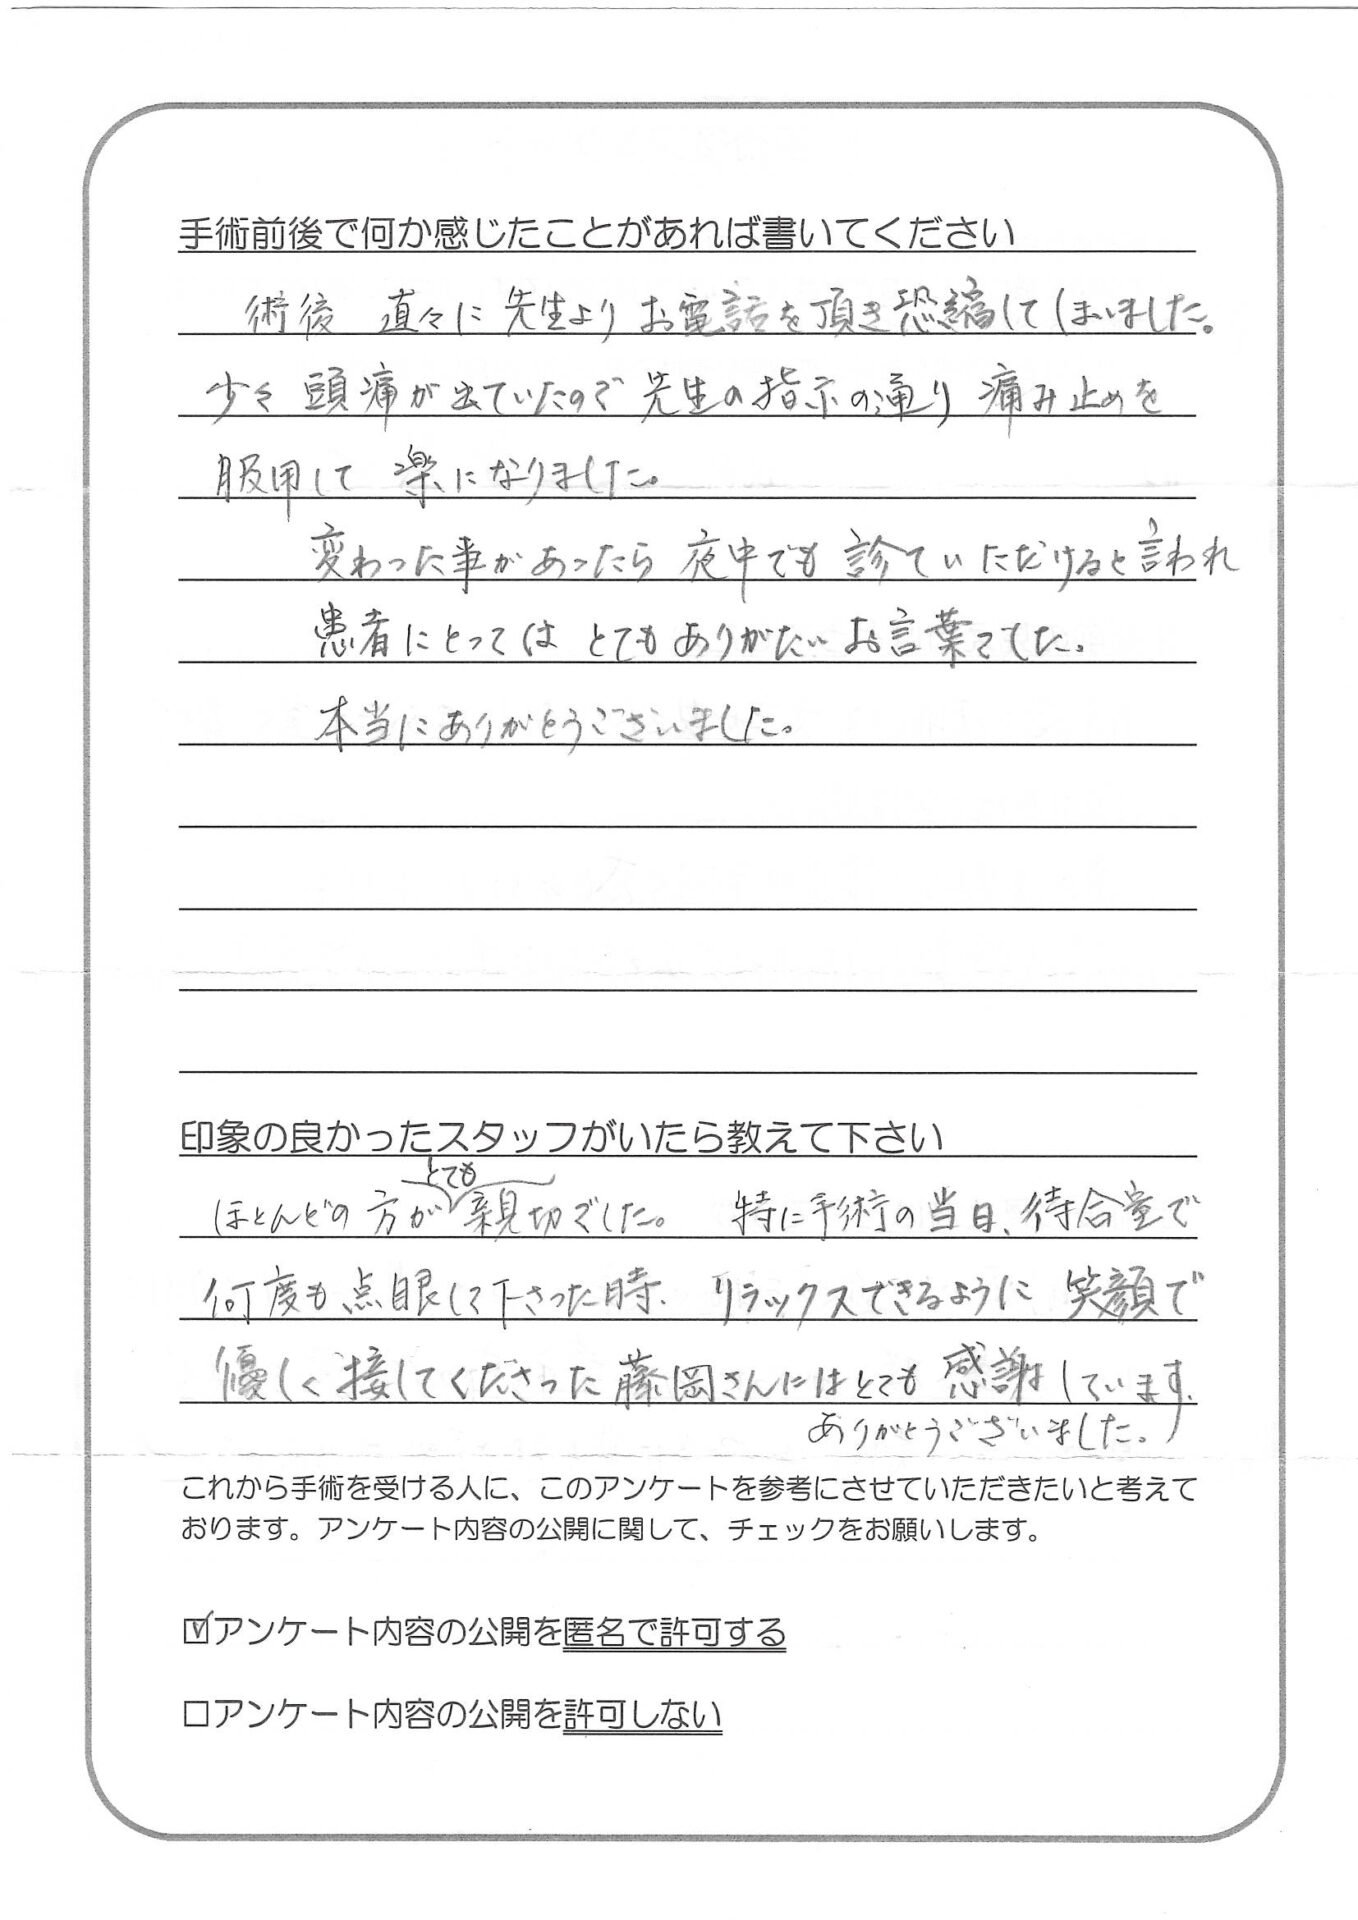 手術前後で何か感じたことがあれば書いてください
術後 直々に先生よりお電話を頂き恐縮してしまいました。
少々頭痛が出ていたので先生の指示の通り痛み止めを
服用して楽になりました。
変わった事があったら夜中でも診ていただけると言われ
患者にとってはとてもありがたいお言葉でした。
本当にありがとうございました。
印象の良かったスタッフがいたら教えて下さい
とても
ほとんどの方が親切でした。 特に手術の当日、待合室で
何度も点眼して下さった時、リラックスできるように笑顔で
優しく接してくださった藤岡さんにはとても感謝しています。
ありがとうございました。
これから手術を受ける人に、このアンケートを参考にさせていただきたいと考えて
おります。アンケート内容の公開に関して、チェックをお願いします。
☑アンケート内容の公開を匿名で許可する
□アンケート内容の公開を許可しない